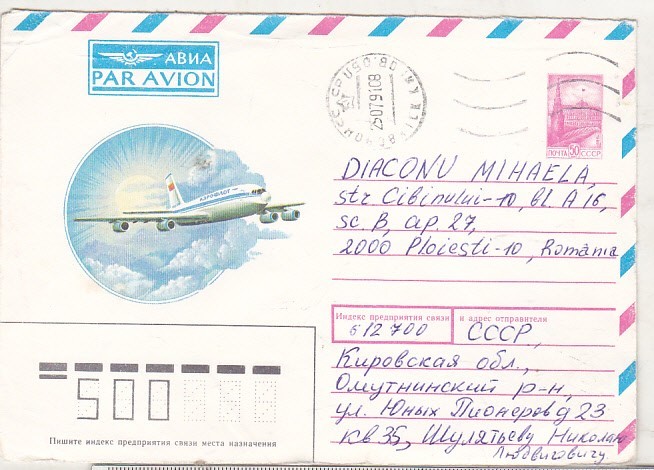 АВИА
PAR AVION
АЭРОФЛОТ
25 07 91 08
ПОЧТА 50 СССР
DIACONU MIHAELA,
str Cibinului-10, bl. A 16,
sc. B, ap. 27,
2000 Ploiești-10, România
Индекс предприятия связи и адрес отправителя
612700 СССР,
Кировская обл.,
Омутнинский р-н,
ул. Юных Пионеров д 23
кв 35, Шулятьеву Николаю
Людвиговичу
500
Пишите индекс предприятия связи места назначения